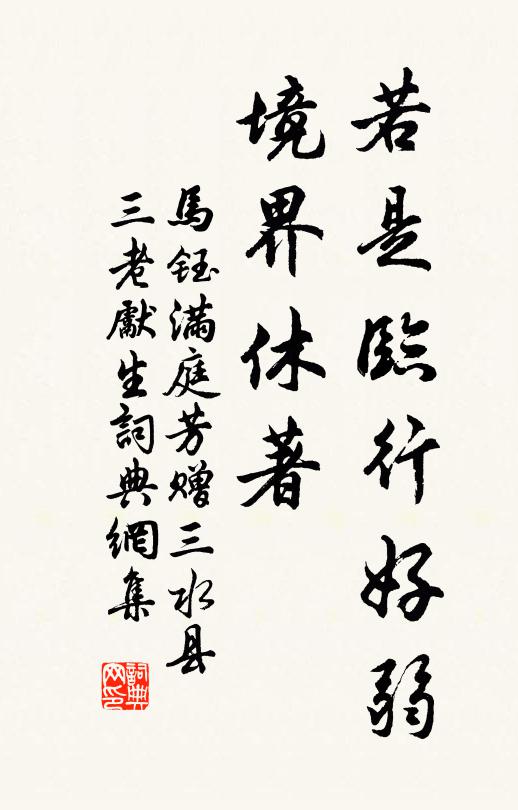 若是臨行好弱
境界休著
馬鈺滿庭芳赠三水县
三老獻生詞典網集
詞典网印